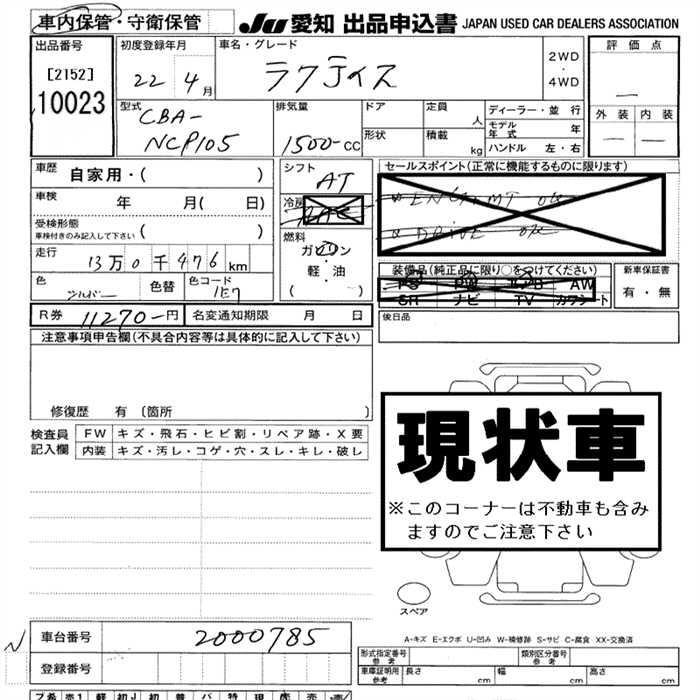 車内保管・守衛保管
JU 愛知 出品申込書 JAPAN USED CAR DEALERS ASSOCIATION
出品番号
[2152]
10023
初度登録年月
22 4月
車名・グレード
2WD
・
4WD
評価点
—
外装 内装
— —
型式
CBA-
NCP105
排気量
1500-CC
ドア
形状
定員 人
積載 kg
ディーラー・並行
モデル年式 年
ハンドル 左・右
車歴
自家用・( )
車検 年 月( 日)
受検形態
車検付きのみ記入して下さい ( )
走行
13万0千476km
色
シルバー
色替
色コード
1E7
シフト
AT
冷房
AAC
燃料
ガソリン
・
軽・油
( )
セールスポイント(正常に機能するものに限ります)
ENG, MT OK
DRIVE OK
装備品(純正品に限り○をつけてください)
PS PW エアB AW
SR ナビ TV カワシート
新車保証書
有・無
R券 11270-円
名変通知期限 月 日
後日品
注意事項申告欄(不具合内容等は具体的に記入して下さい)
修復歴 有 〔箇所 〕
検査員
記入欄
FW キズ・飛石・ヒビ割・リペア跡・X要
内装 キズ・汚レ・コゲ・穴・スレ・キレ・破レ
現状車
※このコーナーは不動車も含み
ますのでご注意下さい
スペア
A-キズ E-エクボ U-凹み W-補修跡 S-サビ C-腐食 XX-交換済
N
車台番号 2000785
登録番号
形式指定番号
参考
類別区分番号
参考
車庫証明用
参考
長さ cm 幅 cm 高さ cm